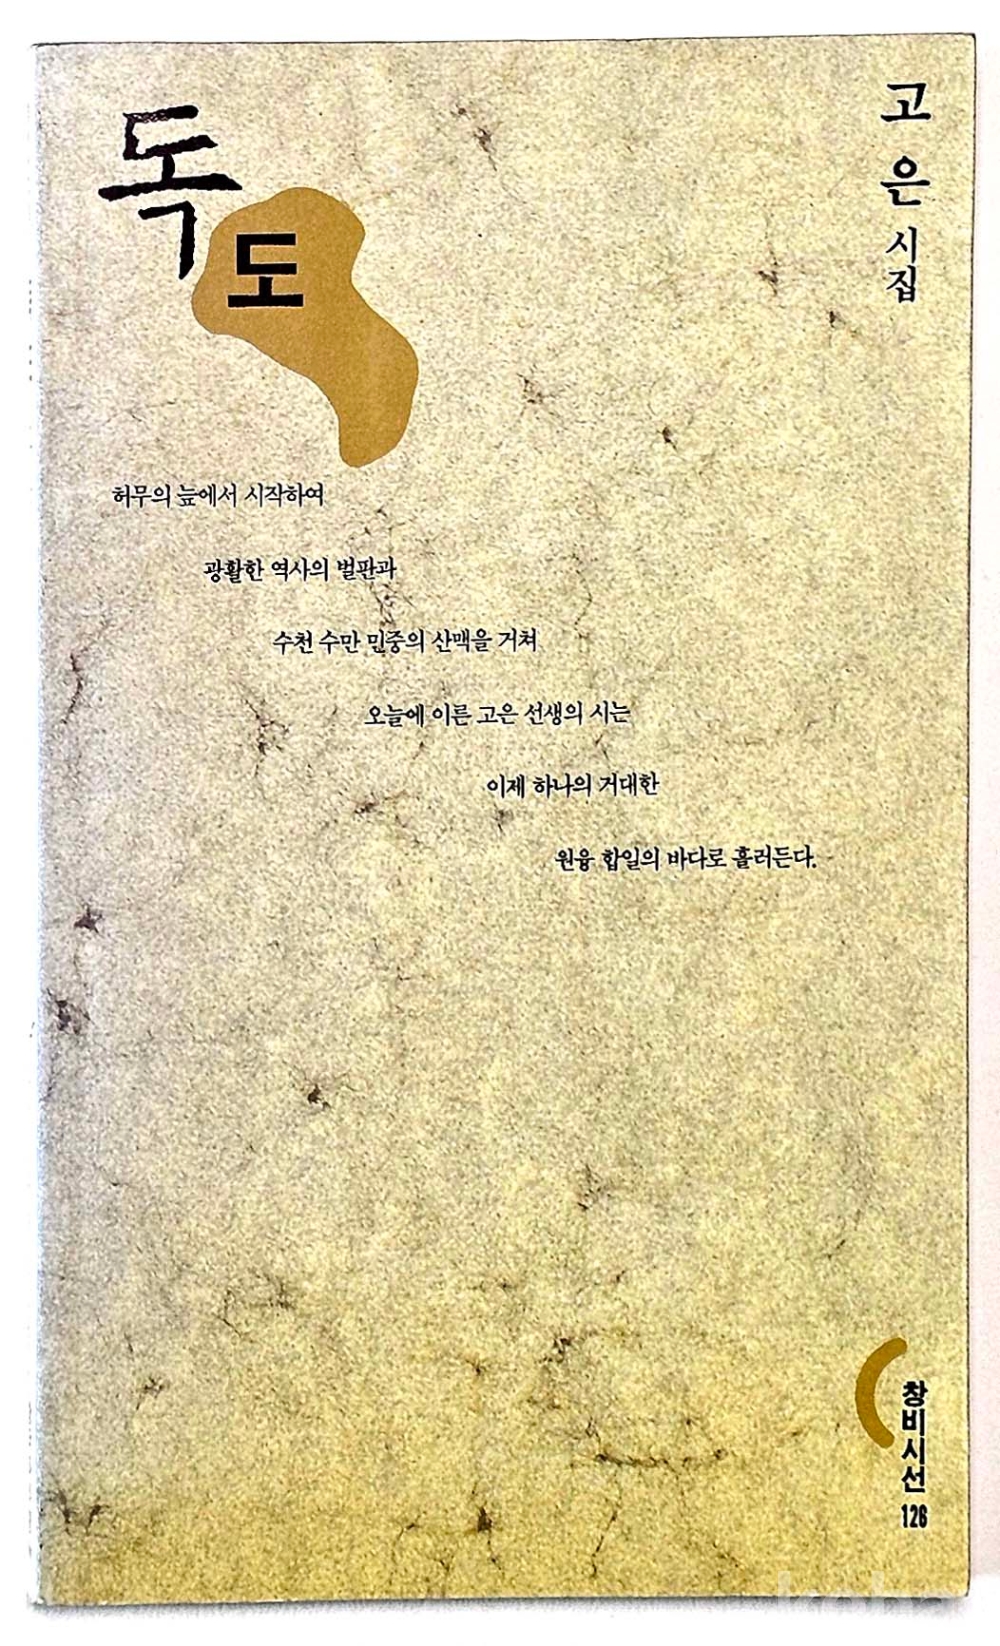 독도
고은 시집
허무의 늪에서 시작하여
광활한 역사의 벌판과
수천 수만 민중의 산맥을 거쳐
오늘에 이른 고은 선생의 시는
이제 하나의 거대한
원융 합일의 바다로 흘러든다.
창비시선
126